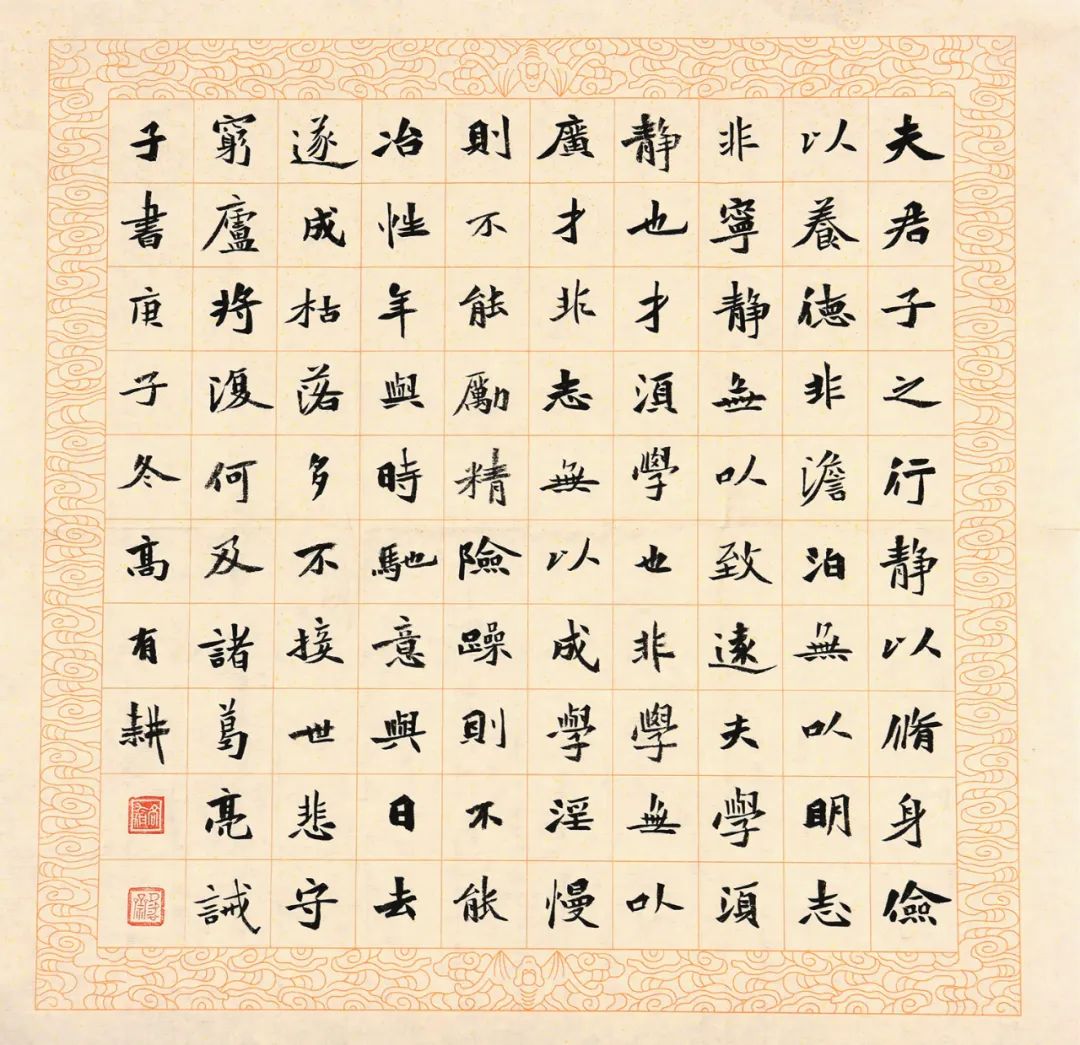 夫君子之行静以脩身儉
以養德非澹泊無以明志
非寧静無以致遠夫學須
静也才須學也非學無以
廣才非志無以成學淫慢
則不能勵精險躁則不能
冶性年與時馳意與日去
遂成枯落多不接世悲守
窮廬將復何及諸葛亮誡
子書庚子冬高有耕